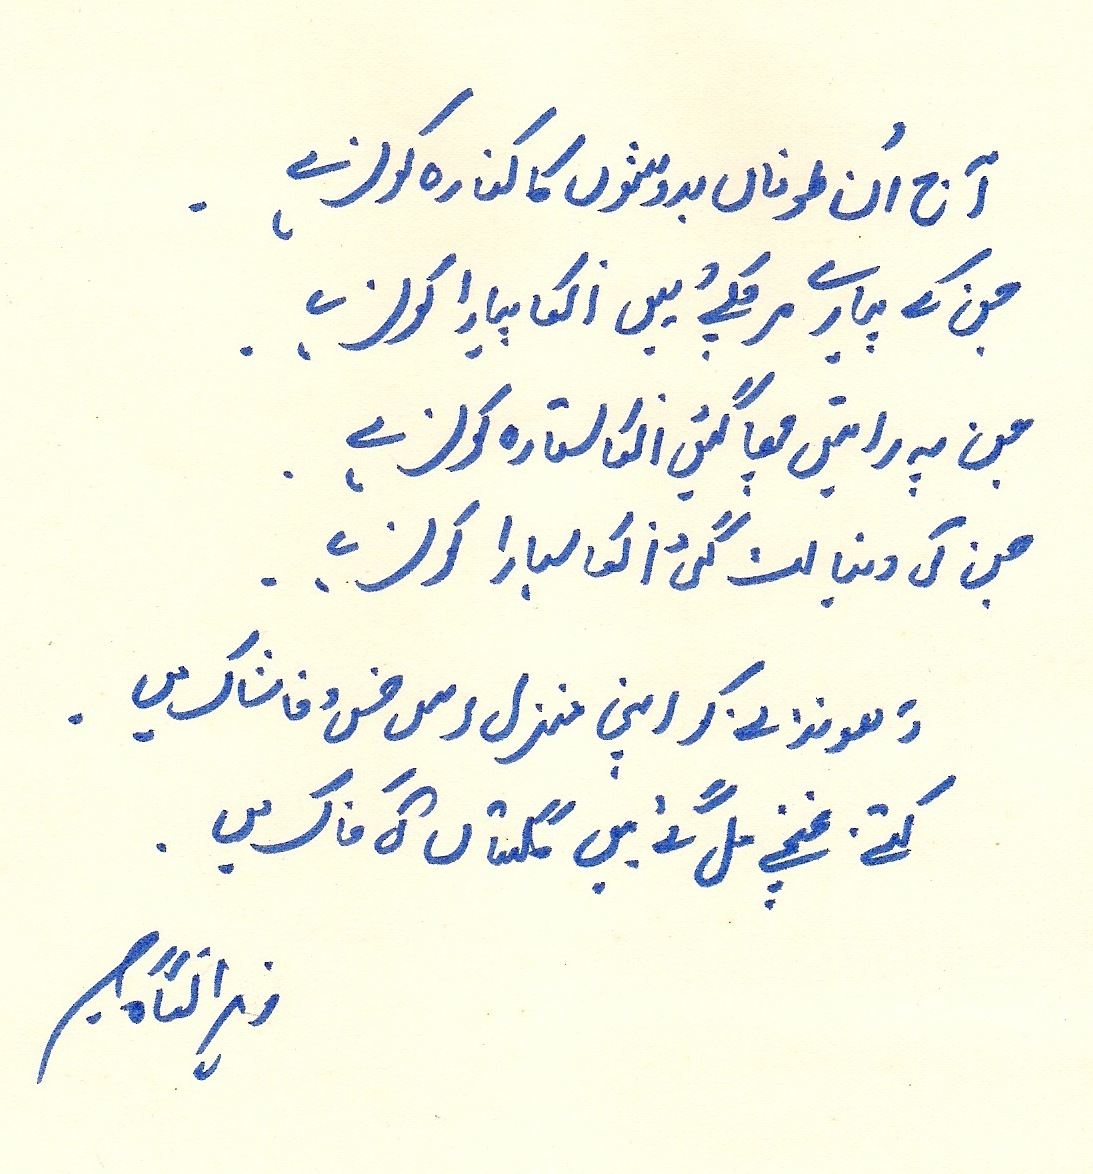 آج اُن طوفاں بدوشوں کا کنارہ کون ہے ۔
جن کے پیارے مر چکے ہیں انکا پیارا کون ہے ۔
جن پہ راتیں چھا گئیں انکا ستارہ کون ہے ۔
جن کی دنیا لٹ گئی انکا سہارا کون ہے ۔
ڈھونڈنے کو اپنی منزل اس خس و خاشاک میں ۔
کتنے غنچے مل گئے ہیں گلستاں کی خاک میں ۔